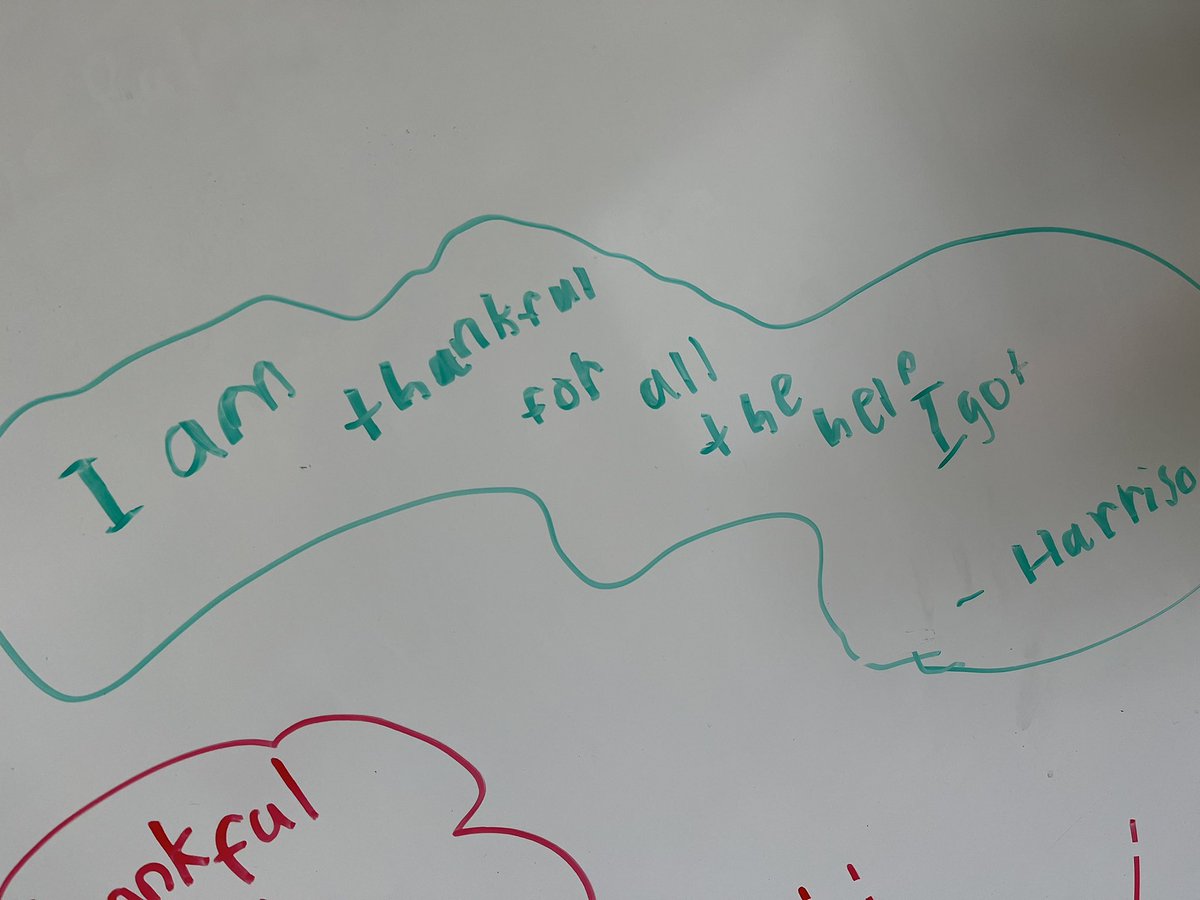 I am thankful for all the help I got
- Harriso
ankful